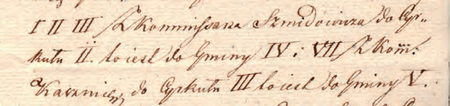 I II III Z Kommissarza Szmidowicza do Cyr-
kułu II. to iest do Gminy IV. i VII Z Kom̃.
do Cyrkułu III to iest do Gminy V.